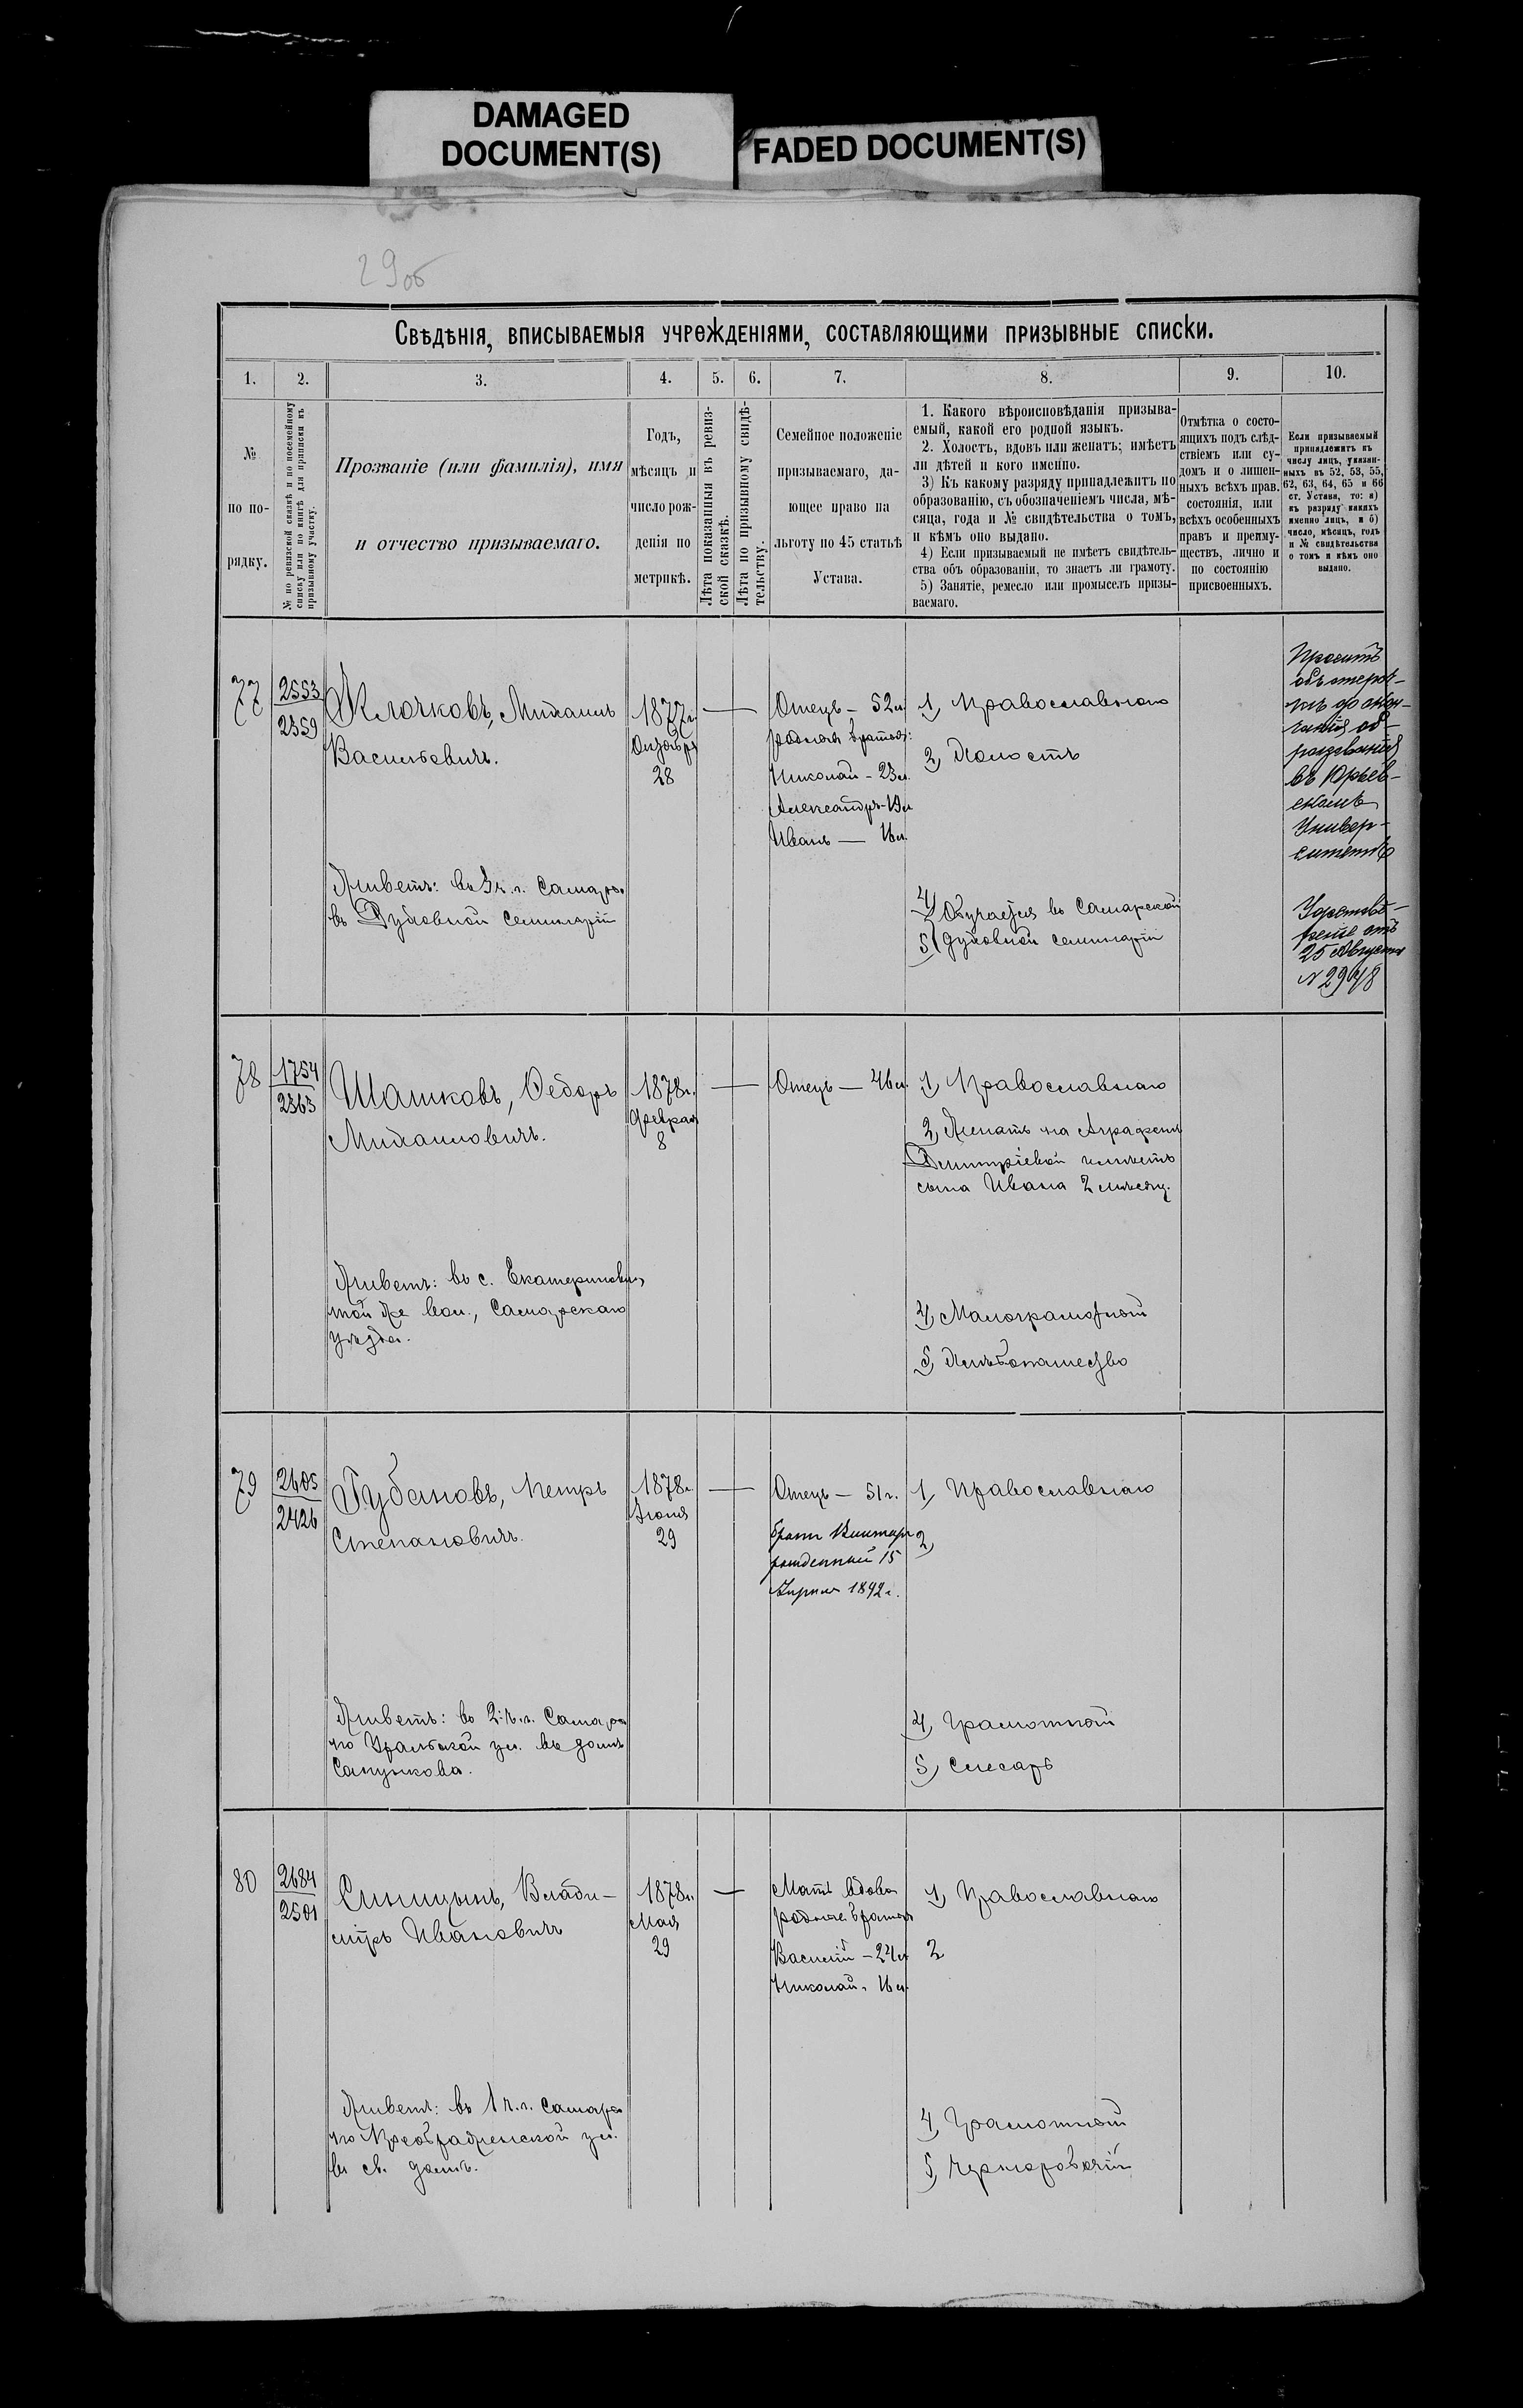 DAMAGED
DOCUMENT(S)
FADED DOCUMENT(S)
29об
Свѣдѣнія, вписываемыя учрежденіями, составляющими призывные списки.
1.
2.
3.
4.
5.
6.
7.
8.
9.
10.
№
по по-
рядку.
№ по ревизской сказкѣ и по посемейному
списку или по книгѣ для приписки къ
призывному участку.
Прозваніе (или фамилія), имя
и отчество призываемаго.
Годъ,
мѣсяцъ и
число рож-
денія по
метрикѣ.
Лѣта показанныя въ ревиз-
ской сказкѣ.
Лѣта по призывному свидѣ-
тельству.
Семейное положеніе
призываемаго, да-
ющее право на
льготу по 45 статьѣ
Устава.
1. Какого вѣроисповѣданія призыва-
емый, какой его родной языкъ.
2. Холостъ, вдовъ или женатъ; имѣетъ
ли дѣтей и кого именно.
3) Къ какому разряду принадлежитъ по
образованію, съ обозначеніемъ числа, мѣ-
сяца, года и № свидѣтельства о томъ,
и кѣмъ оно выдано.
4) Если призываемый не имѣетъ свидѣтель-
ства объ образованіи, то знаетъ ли грамоту.
5) Занятіе, ремесло или промыселъ призы-
ваемаго.
Отмѣтка о состо-
ящихъ подъ слѣд-
ствіемъ или су-
домъ и о лишен-
ныхъ всѣхъ прав.
состоянія, или
всѣхъ особенныхъ
правъ и преиму-
ществъ, лично и
по состоянію
присвоенныхъ.
Если призываемый
принадлежитъ къ
числу лицъ, указан-
ныхъ въ 52, 53, 55,
62, 63, 64, 65 и 66
ст. Устава, то: а)
къ разряду какихъ
именно лицъ, и б)
число, мѣсяцъ, годъ
и № свидѣтельства
о томъ и кѣмъ оно
выдано.
77
2553
2359
Клочковъ, Михаилъ
Васильевичъ.
Живетъ: въ 3 ч. г. Самары
въ Духовной Семинаріи
1877 г.
Октября
28
Отецъ — 52 л.
родныхъ братьевъ:
Николай — 23 л.
Александръ — 19 л.
Иванъ — 16 л.
1, Православнаго
2, Холостъ
4, Обучается въ Самарской
5, духовной семинаріи
Проситъ
объ отсроч-
кѣ до окон-
чанія об-
разованія
въ Юрьев-
скомъ
Универ-
ситетѣ
Удостовѣ-
реніе отъ
25 Августа
№ 2948
78
1754
2363
Шашковъ, Ѳедоръ
Михаиловичъ.
Живетъ: въ с. Екатериновкѣ,
той же вол., Самарскаго
уѣзда.
1878 г.
Февраля
8
Отецъ — 46 л.
1, Православнаго
2, Женатъ на Аграфенѣ
Дмитріевой имѣетъ
сына Ивана 2 мѣсяц.
4, Малограмотный
5, Хлѣбопашество
79
2605
2426
Губановъ, Петръ
Степановичъ.
Живетъ: во 2 ч. г. Самары
по Уральской ул. въ домѣ
Сапункова.
1878 г.
Іюня
29
Отецъ — 51 г.
братъ Викторъ
рожденный 15
Апрѣля 1892 г.
1, Православнаго
2,
4, Грамотный
5, Слесарь
80
2684
2501
Синицынъ, Влади-
міръ Ивановичъ
Живетъ: въ 1 ч. г. Самары
по Преображенской ул.
въ св. домѣ.
1878 г.
Мая
29
Мать вдова
родные братья
Василій — 24 л.
Николай — 16 л.
1, Православнаго
2
4, Грамотный
5, Чернорабочій